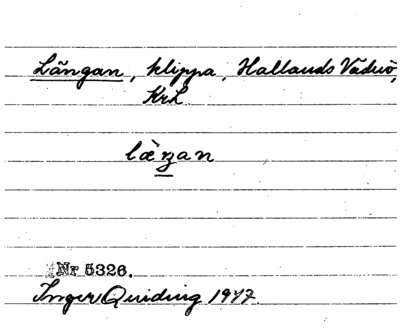 Längan, klippa, Hallands Väderö,
KrL
læ̀ŋan
Nr 5326.
Inger Quiding 1947.